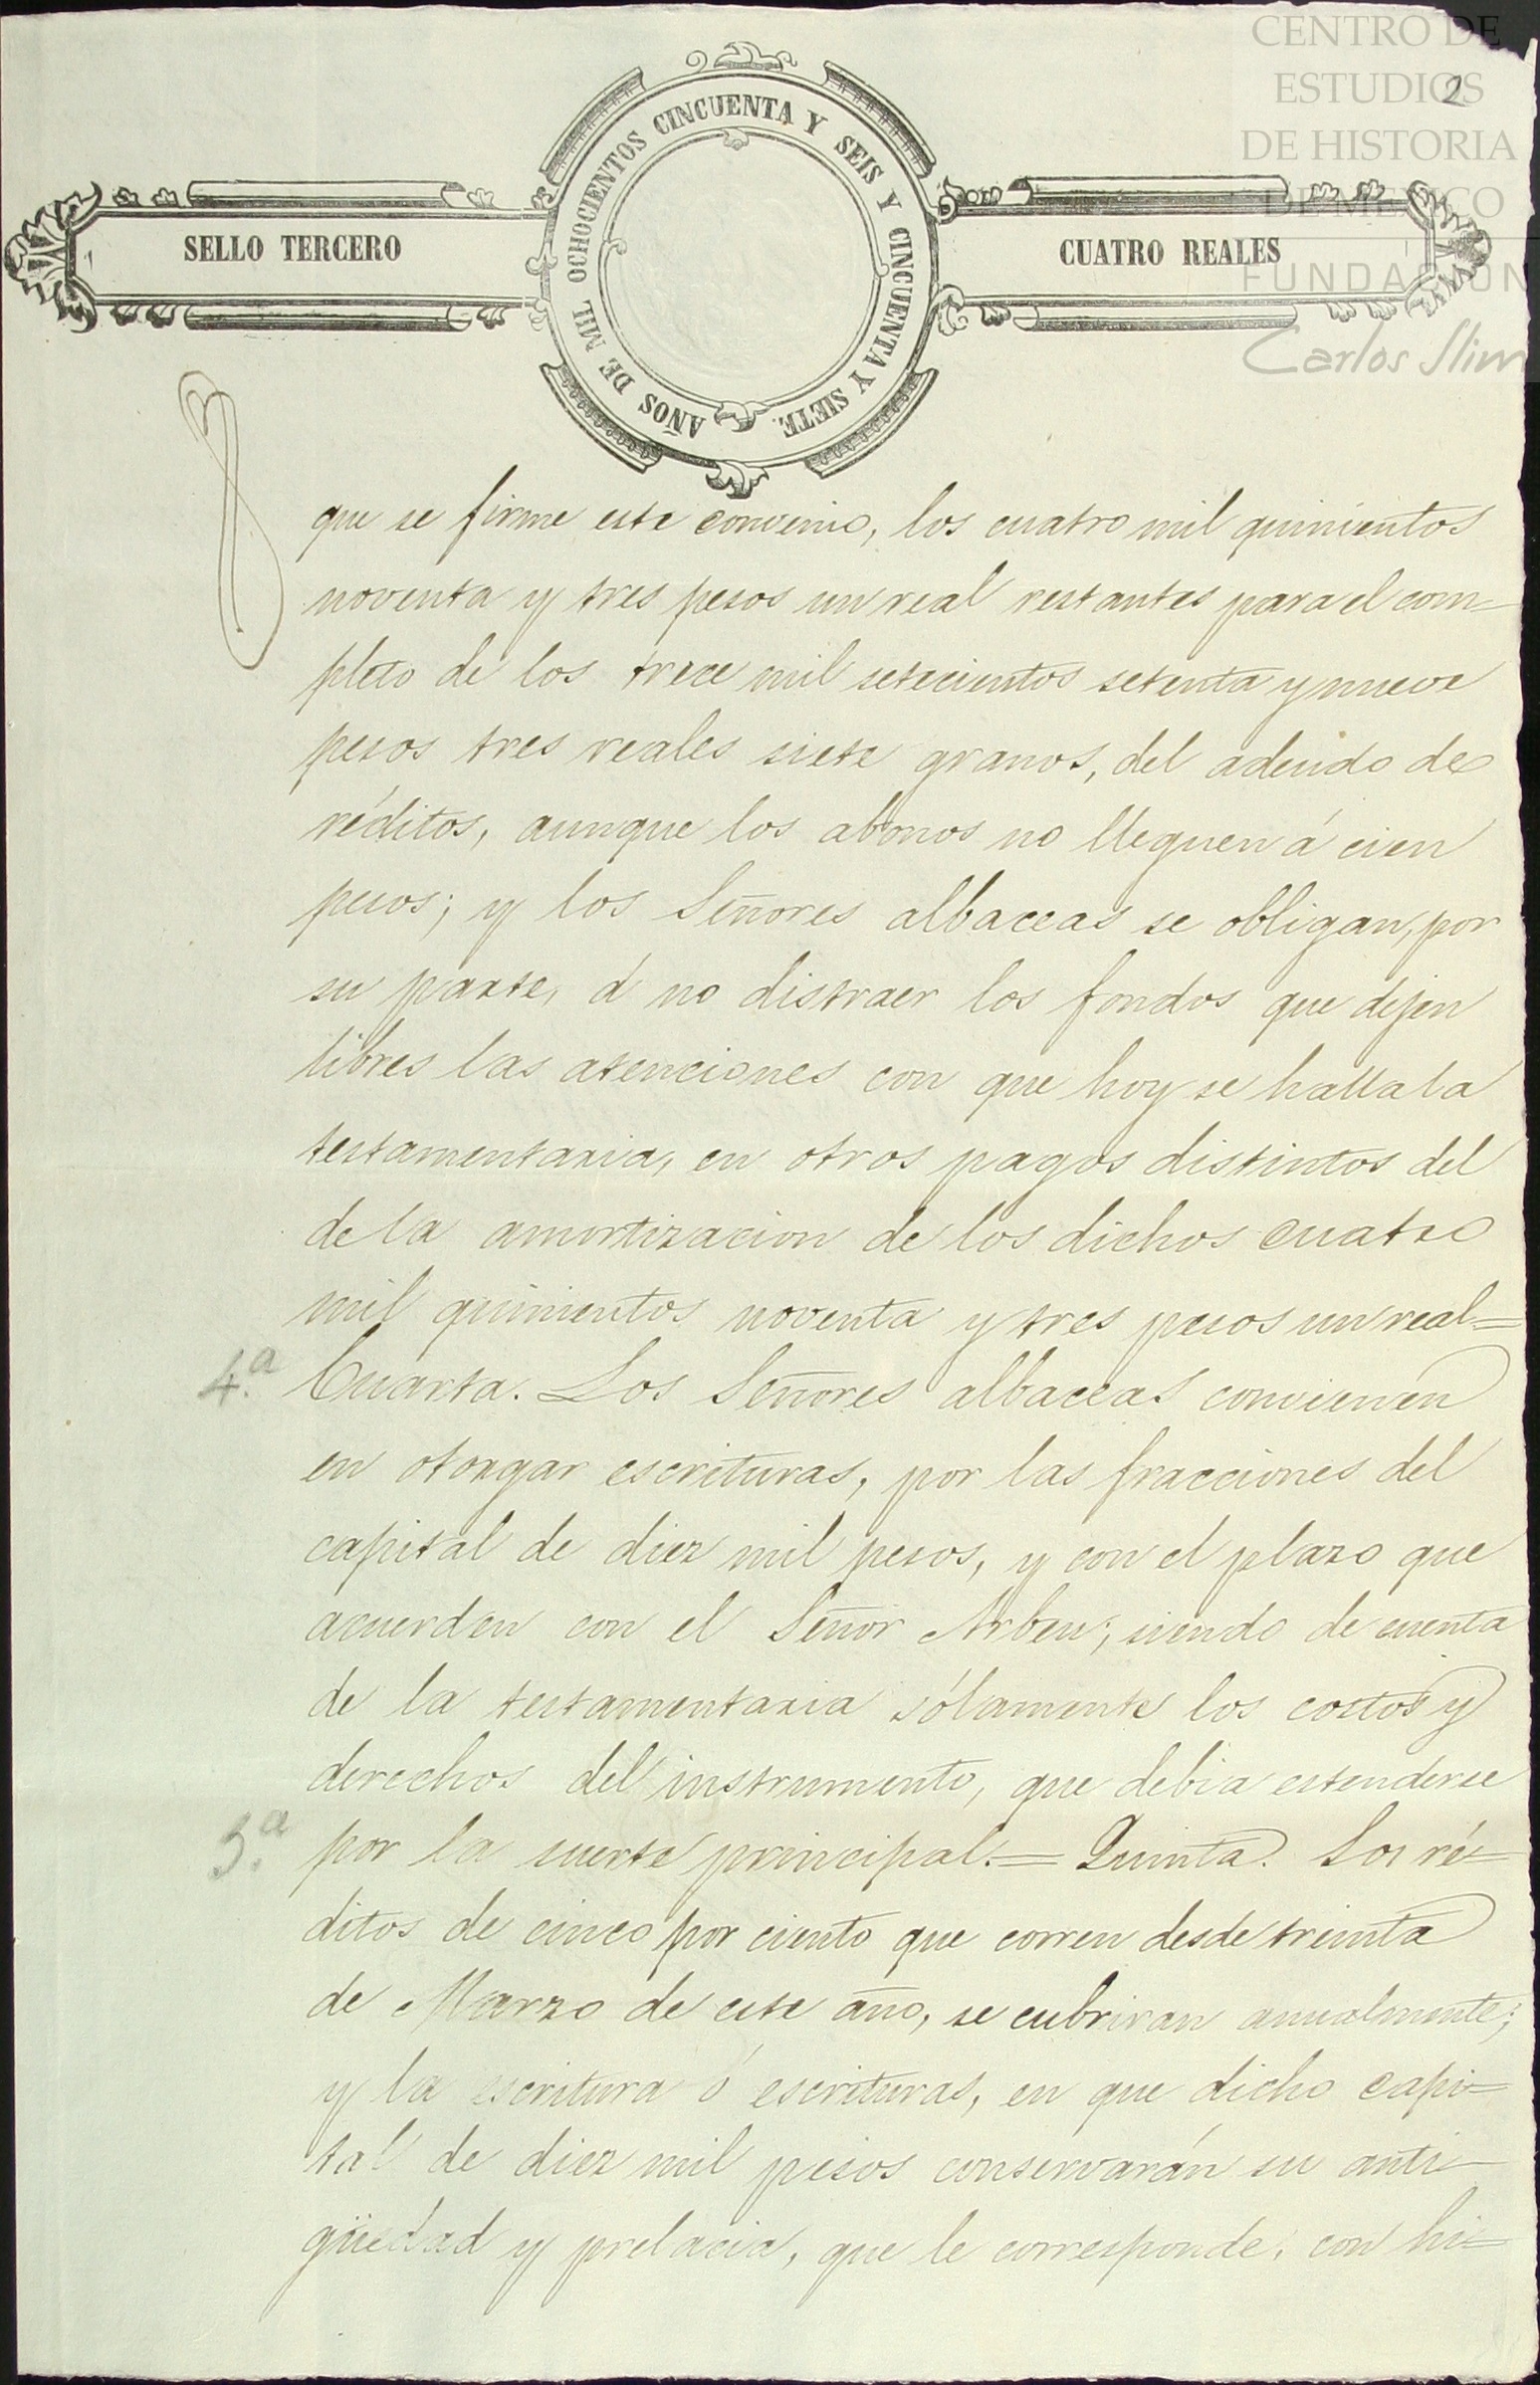 CENTRO DE
ESTUDIOS
DE HISTORIA
DE MÉXICO
FUNDACIÓN
Carlos Slim
2
SELLO TERCERO
AÑOS DE MIL OCHOCIENTOS CINCUENTA Y SEIS Y CINCUENTA Y SIETE.
CUATRO REALES
que se firme este convenio, los cuatro mil quinientos
noventa y tres pesos un real restantes para el com=
pleto de los trece mil setecientos setenta y nueve
pesos tres reales siete granos, del adeudo de
réditos, aunque los abonos no lleguen á cien
pesos; y los Señores albaceas se obligan, por
su parte, á no distraer los fondos que dejen
libres las atenciones con que hoy se halla la
testamentaria, en otros pagos distintos del
de la amortizacion de los dichos cuatro
mil quinientos noventa y tres pesos un real=
4.a Cuarta. Los Señores albaceas convienen
en otorgar escrituras, por las fracciones del
capital de diez mil pesos, y con el plazo que
acuerden con el Señor Arbeu; siendo de cuenta
de la testamentaria sólamente los costos y
derechos del instrumento, que debia estenderse
5.a por la suerte principal.= Quinta. Los ré=
ditos de cinco por ciento que corren desde treinta
de Marzo de este año, se cubriran anualmente;
y la escritura ó escrituras, en que dicho capi=
tal de diez mil pesos conservarán su anti=
güedad y prelacia, que le corresponde, con hi=